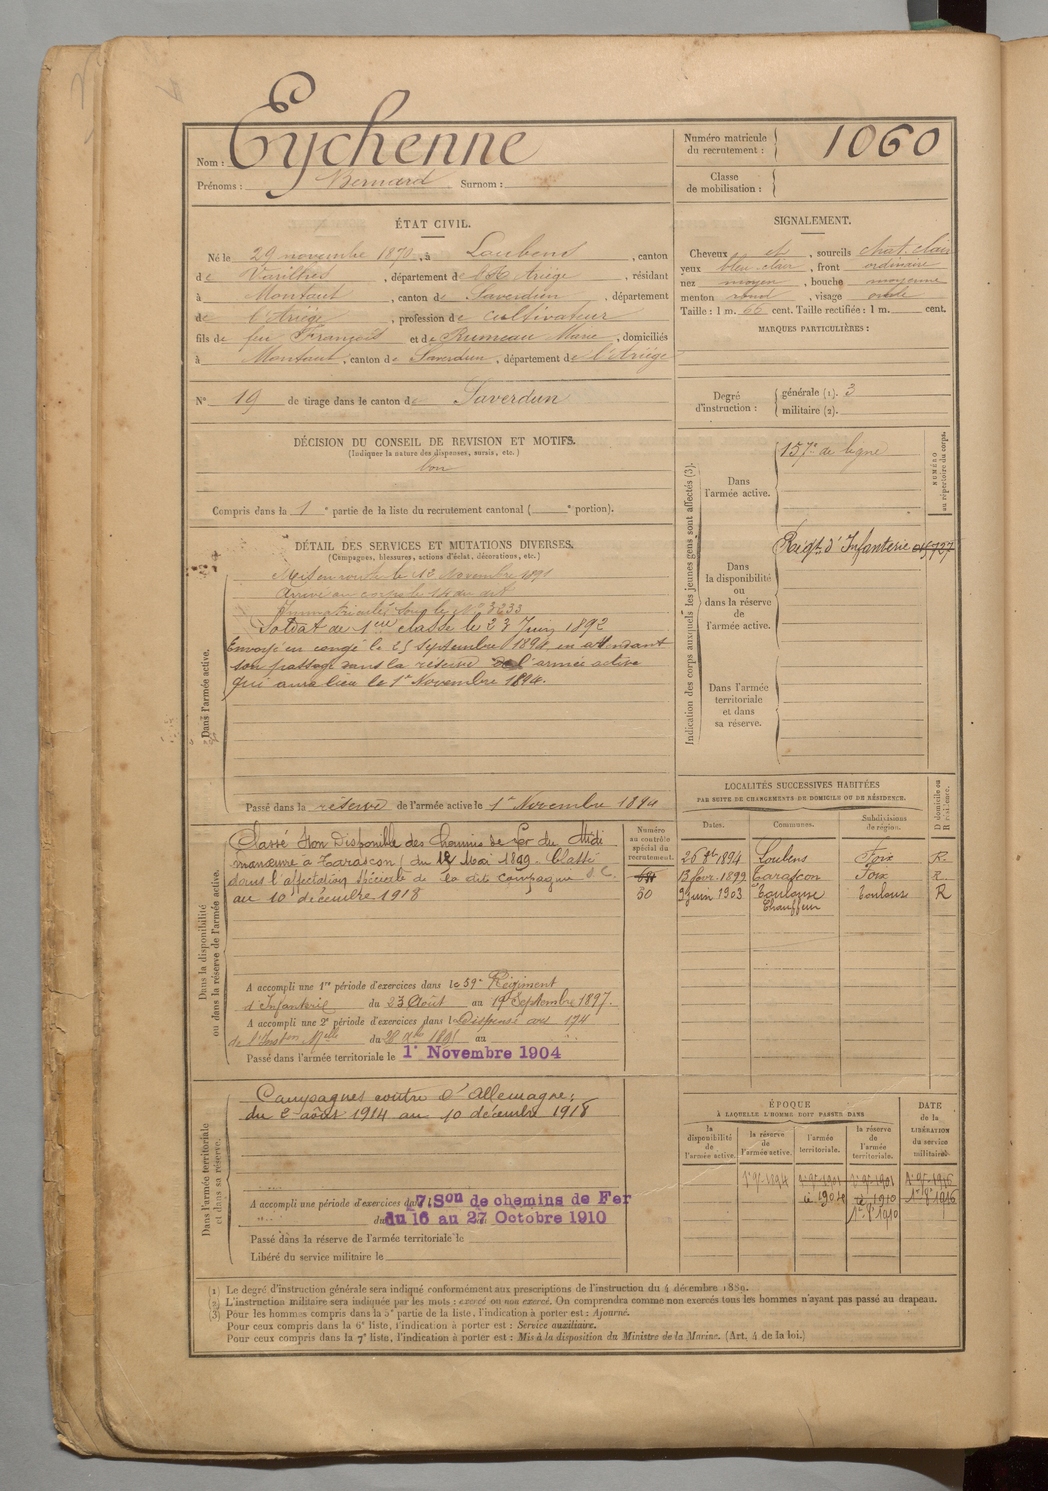 Nom : Eychenne
Prénoms : Bernard Surnom :
Numéro matricule
du recrutement : 1060
Classe
de mobilisation :
ÉTAT CIVIL.
Né le 29 novembre 1870, à Loubens, canton
de Varilhes, département de l'Ariège, résidant
à Montaut, canton de Saverdun, département
de l'Ariège, profession de cultivateur
fils de feu François et de Rumeau Marie, domiciliés
à Montaut, canton de Saverdun, département de l'Ariège
N° 19 de tirage dans le canton de Saverdun
SIGNALEMENT.
Cheveux et, sourcils chat. clair
yeux bleu clair, front ordinaire
nez moyen, bouche moyenne
menton rond, visage ovale
Taille : 1 m. 66 cent. Taille rectifiée : 1 m. cent.
MARQUES PARTICULIÈRES :
Degré
d'instruction :
générale (1). 3
militaire (2).
DÉCISION DU CONSEIL DE REVISION ET MOTIFS.
(Indiquer la nature des dispenses, sursis, etc.)
bon
Compris dans la 1e partie de la liste du recrutement cantonal ( e portion).
DÉTAIL DES SERVICES ET MUTATIONS DIVERSES.
(Campagnes, blessures, actions d'éclat, décorations, etc.)
Dans l'armée active.
Mis en route le 13 Novembre 1891
Arrivé au corps le 14 du dit
Immatriculé sous le N° 3233
Soldat de 1ere classe le 23 Juin 1892
Envoyé en congé le 25 Septembre 1894 en attendant
son passage dans la réserve de l'armée active
qui aura lieu le 1er Novembre 1894.
Passé dans la réserve de l'armée active le 1er Novembre 1894
Indication des corps auxquels les jeunes gens sont affectés (3).
NUMÉRO
au répertoire du corps.
Dans
l'armée active.
157e de ligne
Dans
la disponibilité
ou
dans la réserve
de
l'armée active.
Régt d'Infanterie
Dans l'armée
territoriale
et dans
sa réserve.
Dans la disponibilité
ou dans la réserve de l'armée active.
Numéro
au contrôle
spécial du
recrutement.
30
Classé Non Disponible des Chemins de Fer du Midi
manœuvre à Tarascon (du 12 Mai 1899. Classé
dans l'affectation spéciale de la dite compagnie
au 10 décembre 1918
A accompli une 1re période d'exercices dans le 59e Régiment
d'Infanterie du 23 Août au 19 Septembre 1897.
A accompli une 2e période d'exercices dans le Dispensé art 174
du 28 au
Passé dans l'armée territoriale le 1er Novembre 1904
LOCALITÉS SUCCESSIVES HABITÉES
PAR SUITE DE CHANGEMENTS DE DOMICILE OU DE RÉSIDENCE.
Dates. Communes. Subdivisions
de région. D domicile ou
R résidence.
26 8bre 1894 Loubens Foix R.
13 févr. 1899 Tarascon Foix R.
9 juin 1903 Toulouse Toulouse R
Chauffeur
Dans l'armée territoriale
et dans sa réserve.
Campagnes contre l'Allemagne;
du 2 août 1914 au 10 décembre 1918
A accompli une période d'exercices da 7e Son de chemins de Fer
du 16 au 27 Octobre 1910
Passé dans la réserve de l'armée territoriale le
Libéré du service militaire le
ÉPOQUE
À LAQUELLE L'HOMME DOIT PASSER DANS
DATE
de la
LIBÉRATION
du service
militaire.
la
disponibilité
de
l'armée active.
la réserve
de
l'armée active.
l'armée
territoriale.
la réserve
de
l'armée
territoriale.
1er 9bre 1894 1er 9bre 1901 1er 9bre 1901 1er 9bre 1916
1904 1910 1916
1910
(1) Le degré d'instruction générale sera indiqué conformément aux prescriptions de l'instruction du 4 décembre 1889.
(2) L'instruction militaire sera indiquée par les mots : exercé ou non exercé. On comprendra comme non exercés tous les hommes n'ayant pas passé au drapeau.
(3) Pour les hommes compris dans la 5e partie de la liste, l'indication à porter est : Ajourné.
Pour ceux compris dans la 6e liste, l'indication à porter est : Service auxiliaire.
Pour ceux compris dans la 7e liste, l'indication à porter est : Mis à la disposition du Ministre de la Marine. (Art. 4 de la loi.)